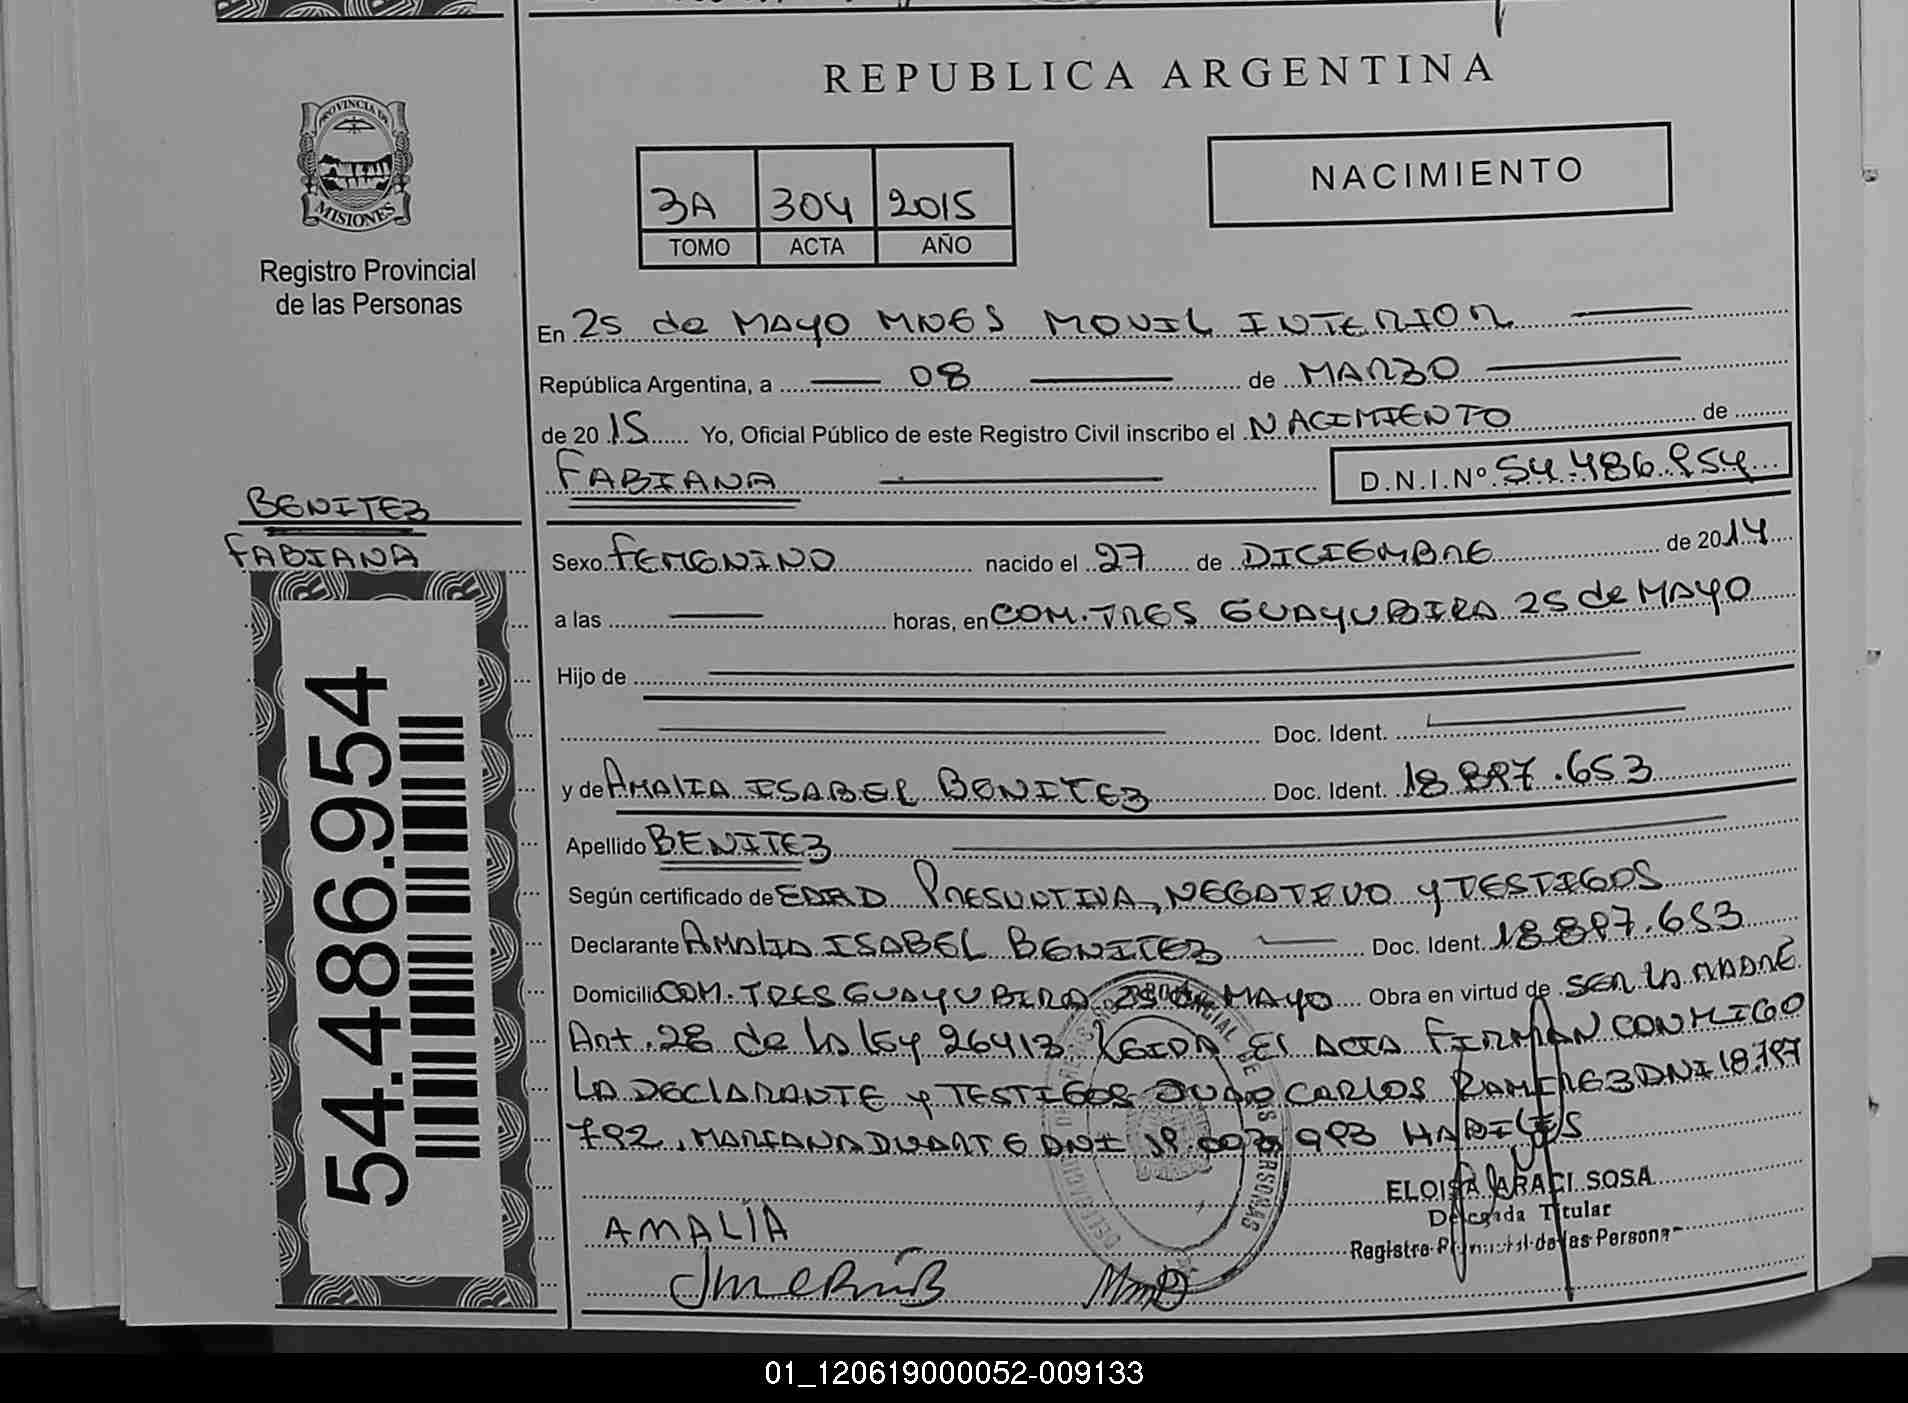 REPUBLICA ARGENTINA
PROVINCIA DE
MISIONES
Registro Provincial
de las Personas
3A 304 2015
TOMO ACTA AÑO
NACIMIENTO
En 25 de MAYO MNES MOVIL INTERIOR
República Argentina, a 08 de MARZO
de 2015 Yo, Oficial Público de este Registro Civil inscribo el NACIMIENTO de
FABIANA D.N.I.Nº 54.486.954
BENITEZ
FABIANA
54.486.954
Sexo FEMENINO nacido el 27 de DICIEMBRE de 2014
a las horas, en COM. TRES GUAYUBIRA 25 de MAYO
Hijo de
Doc. Ident.
y de AMALIA ISABEL BENITEZ Doc. Ident. 18.897.653
Apellido BENITEZ
Según certificado de EDAD PRESUNTIVA, NEGATIVO Y TESTIGOS
Declarante AMALIA ISABEL BENITEZ Doc. Ident. 18.897.653
Domicilio COM. TRES GUAYUBIRA 25 de MAYO Obra en virtud de SER LA MADRE
Art. 28 de la ley 26413 LEIDA EL ACTA FIRMAN CONMIGO
LA DECLARANTE Y TESTIGOS JUAN CARLOS RAMIREZ DNI 18.797
792, MARIANA DUARTE DNI HABILES
ELOISA YARACI SOSA
Delegada Titular
Registro Provincial de las Personas
AMALIA
01_120619000052-009133